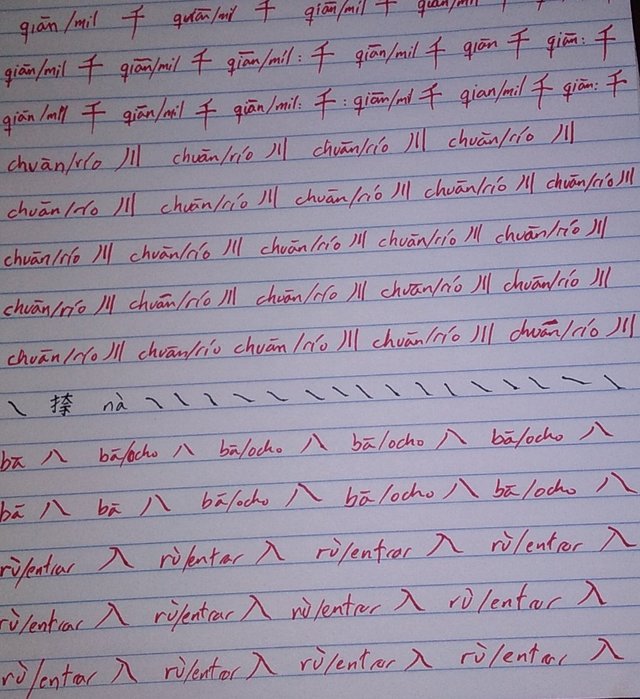 qiān/mil 千 qiān/mil 千 qiān/mil 千 qiān/mil
qiān/mil 千 qiān/mil 千 qiān/mil: 千 qiān/mil 千 qiān 千 qiān: 千
qiān/mil 千 qiān/mil 千 qiān/mil: 千: qiān/mil 千 qian/mil 千 qiān: 千
chuān/río 川 chuān/río 川 chuān/río 川 chuān/río 川
chuān/río 川 chuān/río 川 chuān/río 川 chuān/río 川 chuān/río 川
chuān/río 川 chuān/río 川 chuān/río 川 chuān/río 川 chuān/río 川
chuān/río 川 chuān/río 川 chuān/río 川 chuān/río 川 chuān/río 川
chuān/río 川 chuān/río chuān/río 川 chuān/río 川 chuān/río 川
㇏ 捺 nà ㇏㇏㇏㇏㇏㇏㇏㇏㇏㇏㇏㇏㇏㇏㇏㇏㇏
bā 八 bā/ocho 八 bā/ocho 八 bā/ocho 八 bā/ocho 八
bā 八 bā 八 bā/ocho 八 bā/ocho 八 bā/ocho 八
rù/entrar 入 rù/entrar 入 rù/entrar 入 rù/entrar 入
rù/entrar 入 rù/entrar 入 rù/entrar 入 rù/entrar 入
rù/entrar 入 rù/entrar 入 rù/entrar 入 rù/entrar 入